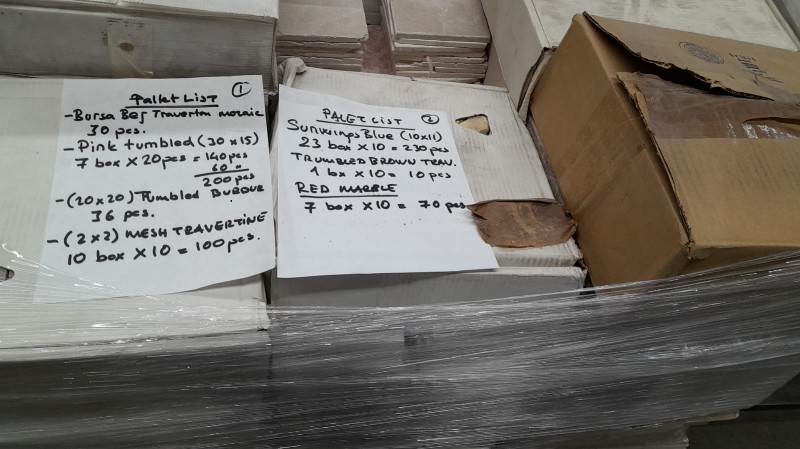 Pallet List ①
- Bursa Bej Traverten mozaic
30 pcs.
- Pink tumbled (30 x 15)
7 box x 20 pcs = 140 pcs
60 "
200 pcs
- (20 x 20) Tumbled BURDUR
36 pcs.
- (2 x 2) MESH TRAVERTINE
10 box x 10 = 100 pcs.
PALET LIST ②
SUNWINGS BLUE (10x11)
23 box x 10 = 230 pcs
TRUMBLED BROWN TRAV.
1 bx x 10 = 10 pcs
RED MARBLE
7 box x 10 = 70 pcs